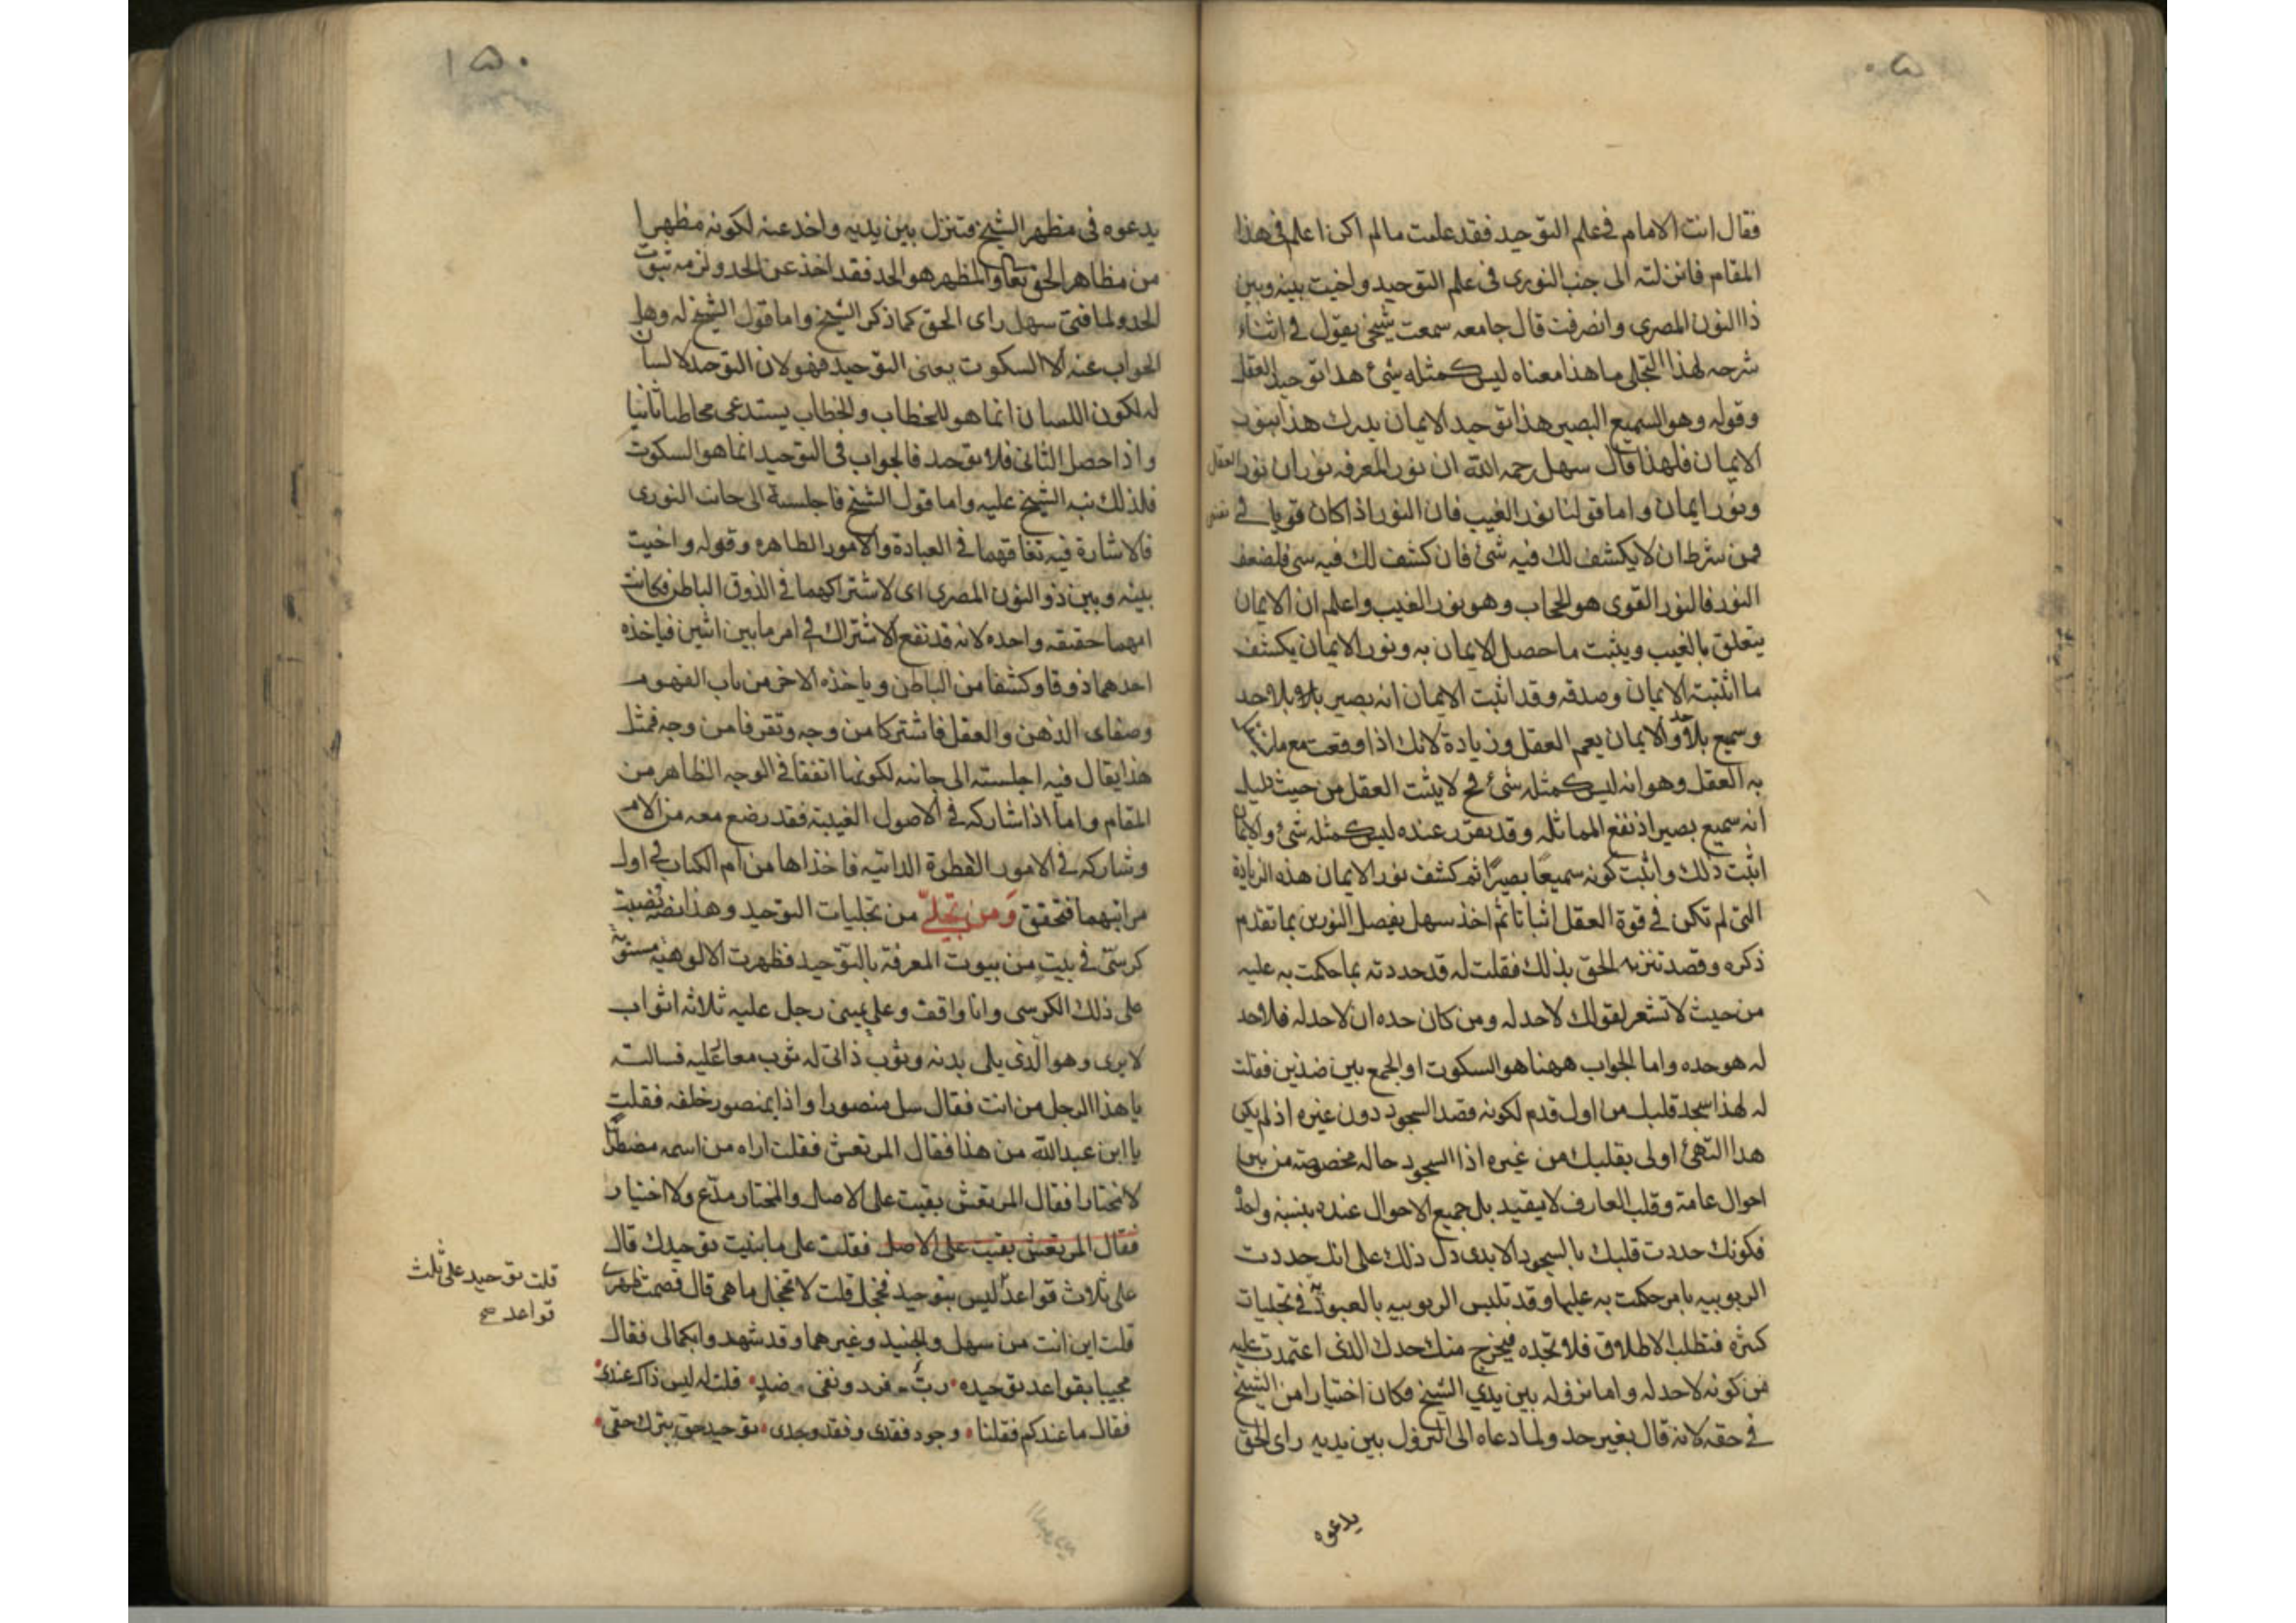 ٥٠
فقال انت الامام في علم التوحيد فقد علمت مالم اكن اعلم في هذا
المقام فانزلته الى جنب النورى فى علم التوحيد واخيت بينه وبين
ذا النون المصرى وانصرفت قال جامعه سمعت شيخى يقول فى اثناء
شرحه لهذا التجلى ما هذا معناه ليس كمثله شئ هذا توحيد العقل
وقوله وهو السميع البصير هذا توحيد الايمان يدرك هذا بنور
الايمان فلهذا قال سهل رحمه الله ان نور المعرفه نوران نور العقل
ونور ايمان واما قولنا نور الغيب فان النور اذا كان قويا فى
فمن شرطه ان لا يكشف لك فيه شئ فان كشف لك فيه شى فلضعف
النور فالنور القوى هو الحجاب وهو نور الغيب واعلم ان الايمان
يتعلق بالغيب ويثبت ما حصل الايمان به ونور الايمان يكشف
ما اثبته الايمان وصدقه وقد اثبت الايمان انه بصير بلا حد
وسميع بلا حد والايمان يعم العقل وزيادة لانك اذا وقعت مع
به العقل وهو انه ليس كمثله شئ فح لا يثبت العقل من حيث دليله
انه سميع بصير اذ نفع المماثله وقد تقرر عنده ليس كمثله شئ والايمان
اثبت ذلك واثبت كونه سميعا بصيرًا ثم كشف نور الايمان هذه الزيادة
التى لم تكن فى قوة العقل اثباتا ثم اخذ سهل يفصل النورين بما تقدم
ذكره وقصد تنزيه الحق بذلك فقلت له قد حددته بما حكمت به عليه
من حيث لا تشعر لقولك لاحد له ومن كان حده ان لاحد له فلا حد
له هو حده واما الجواب ههنا هو السكوت او الجمع بين ضدين فقلت
له لهذا سجد قلبك من اول قدم لكونه قصد السجود دون غيره اذ لم يكن
هذا التهئ اولى بقلبك من غيره اذا السجود حاله مخصوصة من بين
احوال عامة وقلب العارف لا يقيد بل جميع الاحوال عنده بنسبة واحدة
فكونك حددت قلبك بالسجود الابدى دل ذلك على انك حددت
الربوبيه بامر حكمت به عليها وقد تلبس الربوبيه بالعبودية فى تجليات
كثره فتطلب الاطلاق فلا تجده فيخرج منك حدك الذى اعتمدت عليه
من كونه لاحد له واما نزوله بين يدي الشيخ فكان اختيارا من الشيخ
فى حقه لانه قال بغير حد ولما دعاه الى النزول بين يديه راى الحق
يدعوه
١٥٠
يدعوه فى مظهر الشيخ فتنزل بين يديه واخذ عنه لكونه مظهرا
من مظاهر الحق تعا والمظهر هو الحد فقد اخذ عن الحد ولزمه ثبوت
الحد ولما فنى سهل راى الحق كما ذكر الشيخ واما قول الشيخ له وهل
الجواب عنه الا السكوت يعنى التوحيد فهو لان التوحد لا لسان
له لكون اللسان انما هو للخطاب والخطاب يستدعى مخاطبا ثانيا
واذا حصل الثانى فلا توحد فالجواب فى التوحيد انما هو السكوت
فلذلك نبه الشيخ عليه واما قول الشيخ فاجلسته الى جانب النورى
فالاشارة فيه تفاقهما فى العبادة والامور الظاهره وقوله واخيت
بينه وبين ذو النون المصرى اى لاشتراكهما فى الذوق الباطن فكانت
امهما حقيقه واحده لانه قد نفع الاشتراك فى امر ما بين اثنين فياخذه
احدهما ذوقا وكشفا من الباطن وياخذه الاخر من باب الفهوم
وصفاى الذهن والعقل فاشتركا من وجه وتفرقا من وجه فمثل
هذا يقال فيه اجلسته الى جانبه لكونهما اتفقا فى الوجه الظاهر من
المقام واما اذا شاركه فى الاصول الغيبية فقد رضع معه من الام
وشاركه فى الامور الفطرة الذاتيه فاخذاها من ام الكتاب فى اول
مراتبهما فتحقق ومن تجلى من تجليات التوحيد وهذا نصه نصبت
كرسىّ فى بيت من بيوت المعرفة بالتوحيد فظهرت الالوهيه مستوية
على ذلك الكرسى وانا واقف وعلى يمينى رجل عليه ثلاثه اثواب
لا يرى وهو الذى يلى بدنه وثوب ذاتى له ثوب معا عليه فسالته
يا هذا الرجل من انت فقال سل منصورا واذا بمنصور خلفه فقلت
يا ابن عبد الله من هذا فقال المرتعش فقلت اراه من اسمه مضطرًا
لا مختارا فقال المرتعش بقيت على الاصل والمختار مدّع ولا اختيار
فقال المرتعش بقيت على الاصل فقلت على ما بنيت توحيدك قال
على ثلاث قواعد ليس بتوحيد فخجل قلت لا تخجل ما هى قال قصمت ظهرى
قلت اين انت من سهل والجنيد وغيرهما وقد شهدوا بكمالى فقال
مجيبا بقواعد توحيده ربٌّ وفرد ونفى ضد قلت له ليس ذاك عندى
فقال ما عندكم فقلنا وجود فقدى وفقد وجدى توحيد حق بترك حقى
قلت توحيد على ثلث
قواعد صح